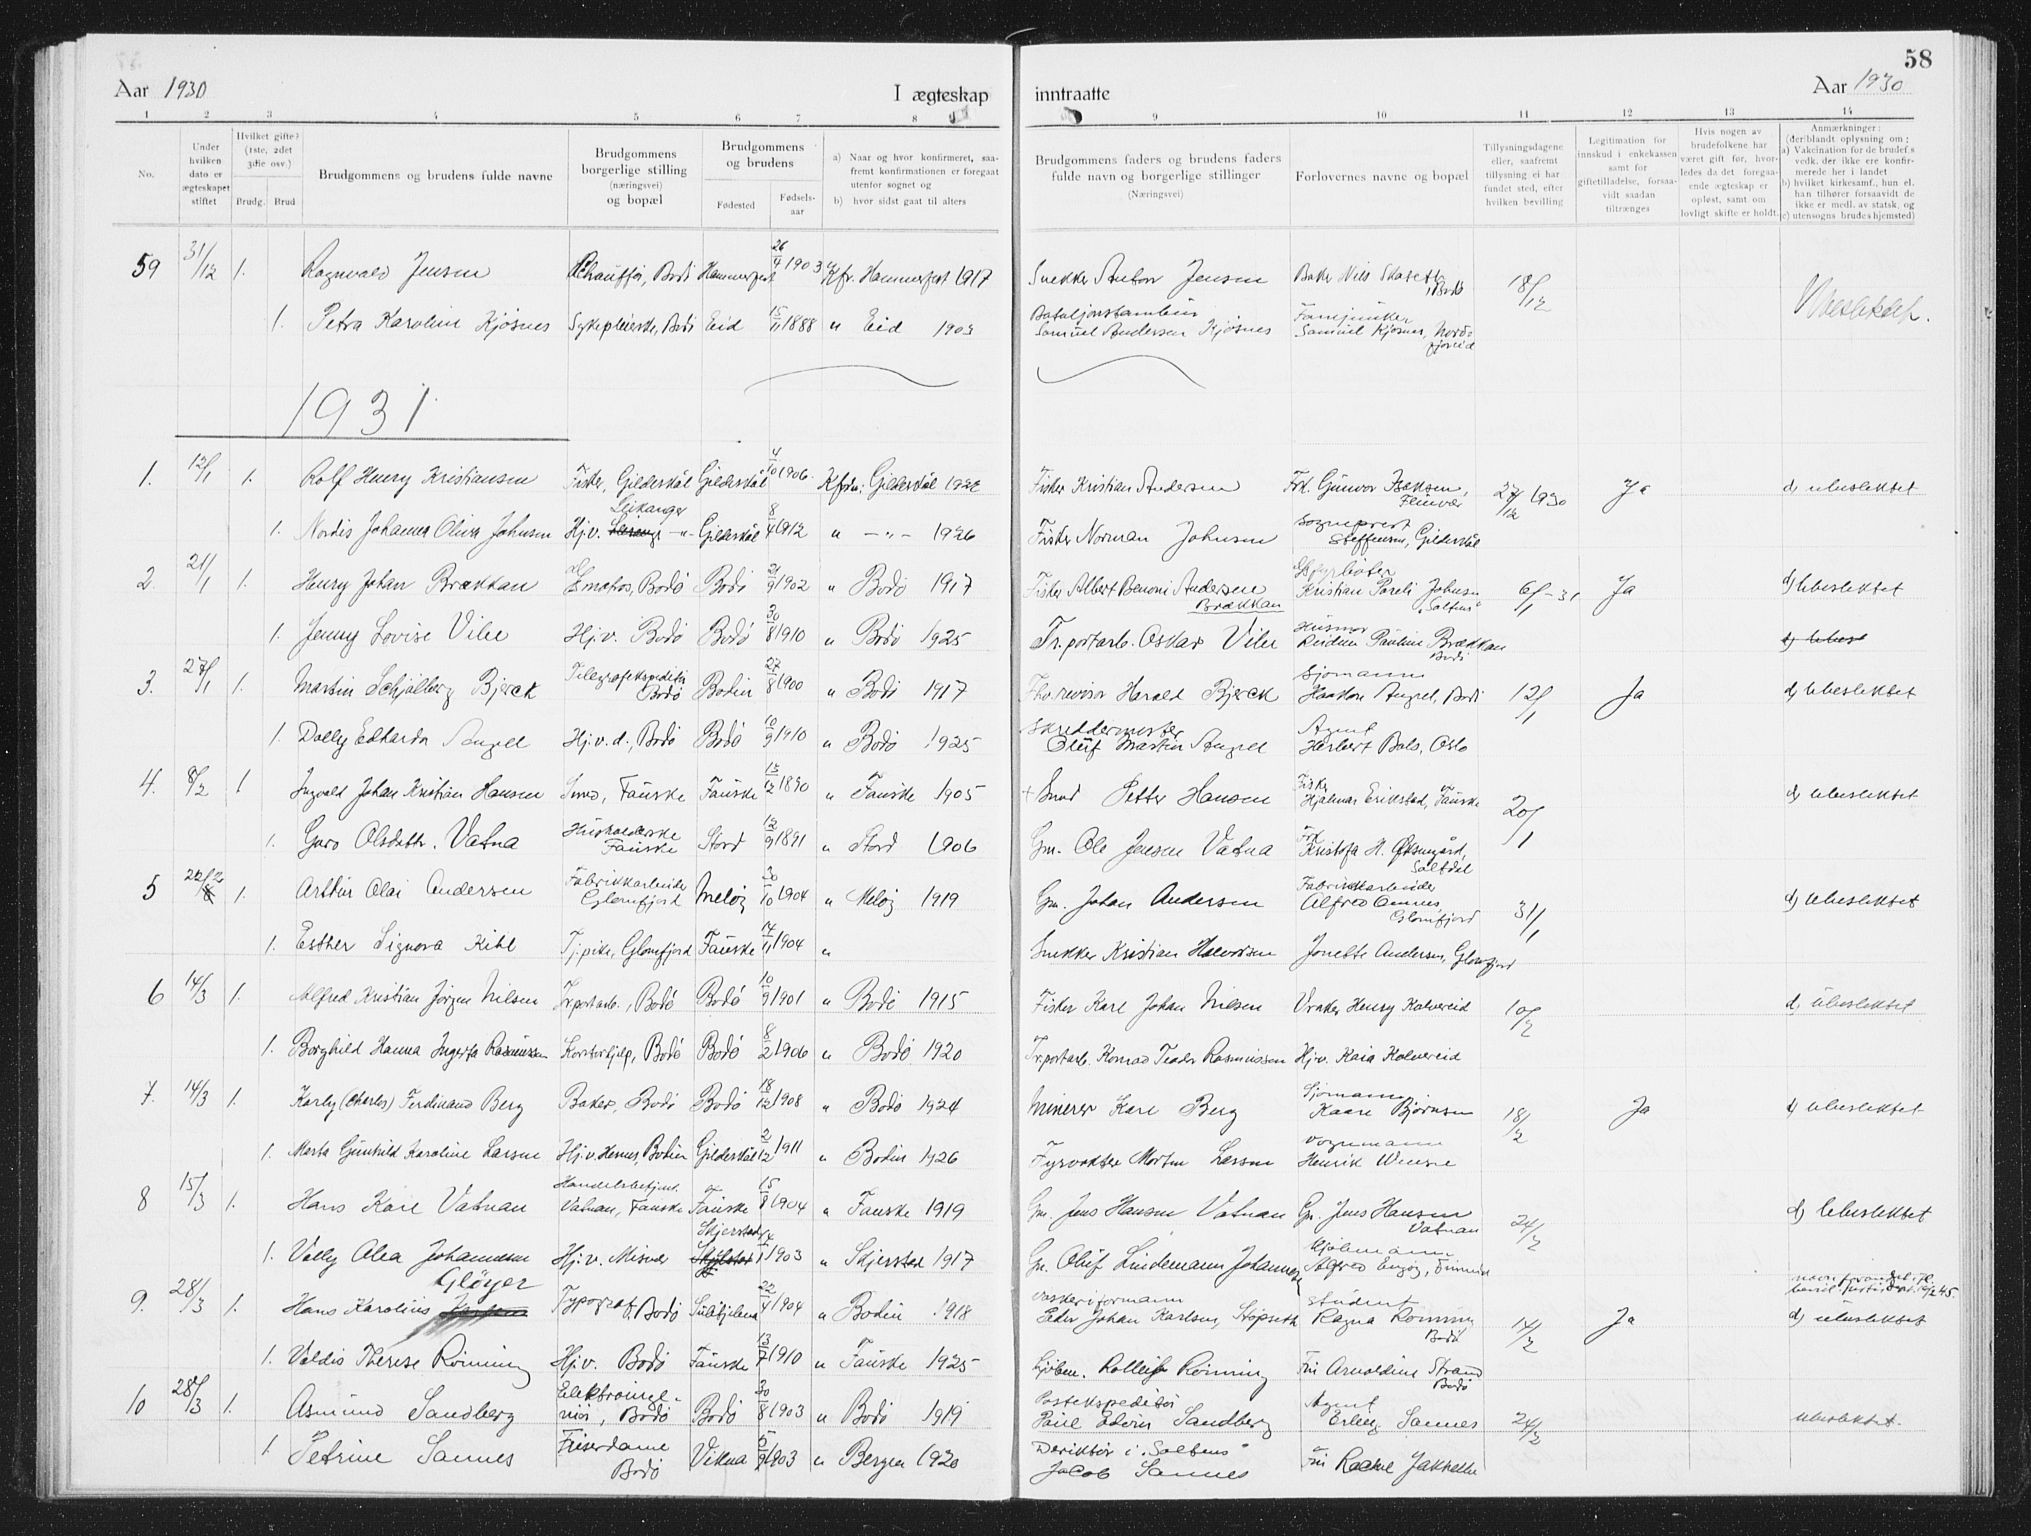 58
Aar 1930 I ægteskap inntraatte Aar 1930
1 2 3 4 5 6 7 8 9 10 11 12 13 14
No.
Under hvilken dato er ægteskapet stiftet
Hvilket gifte? (1ste, 2det 3die osv.)
Brudg. Brud
Brudgommens og brudens fulde navne
Brudgommens borgerlige stilling (næringsvei) og bopæl
Brudgommens og brudens
Fødested Fødsels-aar
a) Naar og hvor konfirmeret, saafremt konfirmationen er foregaat utenfor sognet og
b) hvor sidst gaat til alters
Brudgommens faders og brudens faders fulde navn og borgerlige stillinger
(Næringsvei)
Forlovernes navne og bopæl
Tillysningsdagene eller, saafremt tillysning ei har fundet sted, efter hvilken bevilling
Legitimation for innskud i enkekassen samt for giftetilladelse, forsaavidt saadan tiltrænges
Hvis nogen av brudefolkene har været gift før, hvorledes da det foregaaende ægteskap er opløst, samt om lovligt skifte er holdt.
Anmærkninger: (deriblandt oplysning om:
a) Vakcination for de brudef.s vedk. der ikke ere konfirmerede her i landet
b) hvilket kirkesamf., hun el. han tilhører forsaavidt de ikke er medl. av statsk. og
c) utensogns brudes hjemsted)
59 31/12 1. Ragnvald Jensen Chauffør, Bodø Hammerfest 26/4 1903 Kfr. Hammerfest 1917 Snekker Anton Jensen Baker Nils Skaseth, Bodø 18/12 Ubeslektet.
1. Petra Karoline Kjøsnes Sykepleierske, Bodø Eid 15/11 1888 " Eid 1903 Bataljonstambur Samuel Andersen Kjøsnes Fanejunker Samuel Kjøsnes, Nordfjordeid
1931
1. 12/1 1. Rolf Henry Kristiansen Fisker, Gildeskål Gildeskål 4/10 1906 Kfrm: Gildeskål 1922 Fisker Kristian Andersen Frk. Gunvor Isaksen, Fleinvær 27/12 1930 Ja d) ubeslektet
1. Nordis Johanna Oliva Johnsen Hj.v. Leikanger -"- Gildeskål 8/4 1912 " -"- 1926 Fisker Norman Johnsen Sogneprest Steffensen, Gildeskål
2. 21/1 1. Henry Johan Brækkan Matros, Bodø Bodø 21/9 1902 " Bodø 1917 Fisker Albert Benoni Andersen Brækkan Fyrbøter Kristian Pareli Johnsen "Saltens" 6/1-31 Ja d) Ubeslektet
1. Jenny Lovise Vibe Hj.v. Bodø Bodø 30/8 1910 " Bodø 1925 Tr.portarb. Oskar Vibe Husmor Reidun Pauline Brækkan Bodø d) ubesl
3. 27/1 1. Martin Schjølberg Bjerck Telegrafekspeditør Bodø Bodin 27/8 1900 " Bodø 1917 Harald Bjerck Sjømann Haakon Angel, Bodø 12/1 Ja d) Ubeslektet
1. Dolly Edharda Angell Hj.v.d., Bodø Bodø 10/9 1910 " Bodø 1925 Skreddermester Oluf Martin Angell Agent Herbert Bals, Oslo
4. 8/2 1 Ingvald Johan Kristian Hansen Smed, Fauske Fauske 15/12 1890 " Fauske 1905 + Smed Petter Hansen Fisker Hjalmar Erikstad, Fauske 20/1 d) Ubeslektet
1. Guro Olsdatter Vatna Husholderske Fauske Stord 12/9 1891 " Stord 1906 Gm. Ole Jensen Vatna Frk. Kristofa H. Øksengård, Saltdal
5 22/2 1. Arthur Olai Andersen Fabrikkarbeider Glomfjord Meløy 30/10 1904 " Meløy 1919 Gm. Johan Andersen Fabrikkarbeider Alfred Ornes Glomfjord 31/1 d) Ubeslektet
1. Esther Signora Kihl Tj.pike, Glomfjord Fauske 14/11 1904 " Snekker Kristian Halvorsen Jonette Andersen, Glomfjord
6 14/3 1. Alfred Kristian Jørgen Nilsen Tr.portarb., Bodø Bodø 10/9 1901 " Bodø 1915 Fisker Karl Johan Nilsen Vraker Henry Kalvereid 10/2 d) Ubeslektet
1. Borghild Hanna Ingerta Rasmussen Kontorhjelp, Bodø Bodø 8/2 1906 " Bodø 1920 Tr.portarb. Konrad Teodor Rasmussen Hj.v. Kaia Kalvereid
7. 14/3 1. Karly (Charles) Ferdinand Berg Baker, Bodø Bodø 18/12 1908 " Bodø 1924 Minerer Karl Berg Sjømann Kaare Bjørnsen 18/2 Ja d) Ubeslektet
1. Marta Gunhild Karoline Larsen Hj.v. Hernes, Bodin Gildeskål 2/12 1911 " Bodin 1926 Fyrvokter Morten Larsen Vognmann Henrik Wense
8 15/3 1. Hans Karl Vatnan Handelsbetjent Vatnan, Fauske Fauske 15/8 1904 " Fauske 1919 Gm. Jens Hansen Vatnan Gm. Jens Hansen Vatnan 24/2 d) Ubeslektet
1. Vally Alea Johannessen Hj.v. Misvær Skjerstad 1903 " Skjerstad 1917 Gm. Oluf Lindemann Johannessen Alfred
9. 28/3 1. Hans Karolius Gløyer Typograf, Bodø Sulitjelma 22/4 1904 " Bodin 1918 Vaskeriformann Peder Johan Karlsen, Støpseth Student Ragna Rønning Bodø 14/2 Ja d) ubeslektet
1. Valdis Therese Rønning Hj.v. Bodø Fauske 13/7 1910 " Fauske 1925 Kjøbm. Rolleif Rønning Fru Arnoldine Strand Bodø
10 28/3 1. Asmund Sandberg Elektroingeniør, Bodø Bodø 30/8 1903 " Bodø 1919 Postekspeditør Paul Edvin Sandberg Agent Erling Sannes 24/2 Ubeslektet.
1. Petrine Sannes Friserdame Bodø Vikna 5/9 1903 " Bergen 1920 Direktør i "Saltens" Jacob Sannes Fru Rachel Jakhelln